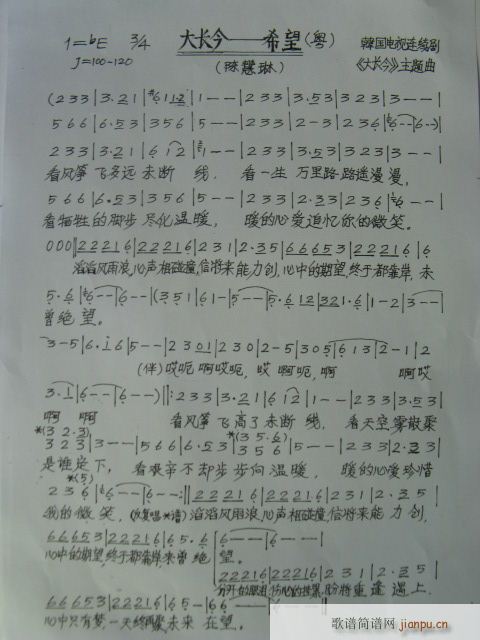 1=bE 3/4 大长今——希望(粤) 韓国电视连续剧
J=100-120 (陈慧琳) 《大长今》主题曲
(2 3 3|3·2 1|6 1 1 2|1 - -|2 3 3|3·5 3|3 2 3|3 - -|
5 6 6|6·5 3|3 5 6|5 - -|2 3 3|2 - 3|2 3 6|6 - -|6 - -)|
2 3 3|3·2 1|6 1 2|1 - -|2 3 3|3·5 3|3 2 3|3 - -|
看风筝 飞多远 未断 线, 看一生 万里路 路遥漫漫,
5 6 6|6·5 3|3 5 6|5 - -|2 3 3|2·3 3|2 3 6|6 - -|
看牺牲 的脚步 尽化温暖, 暖的心爱追忆你的微笑。
0 0 0‖2 2 2 1 6|2 2 2 1 6|2 3 1|2·3 5|6 6 6 5 3|2 2 2 1 6|6
滔滔风雨浪,心声相碰撞,信将来能力创,心中的期望,终于都靠岸,未
5·6|6 - -|6 - -|(3 5 1|6 1 -|5 - -|5·6 1 2|3 2 1·6|1 - 2|3 - -|
曾绝 望。
3 - 5|6·i 6|5 - -|2 3 0 1|2 3 0|2 - 5|3 0 5|6 1 3|2 - 1|2
(伴)哎呃 啊哎呃, 哎 啊呃,啊 啊哎
3·1|6 - -|6 - -)‖:2 3 3|3·2 1|6 1 2|1 - -|2 3 3|3·5 3|
啊 啊 看风筝 飞高了 未断 线, 看天空 雾散聚
*(3 2·3) *(3 5·6)
3 2 3|3 - -|5 6 6|6·5 3|3 5 6|5 - -|2 3 3|2·3 3|
是谁定下, 看艰辛 不却步 步向 温暖, 暖的心爱珍惜
*(5)
2 3 6|6 - -|6 - -:‖2 2 2 1 6|2 2 2 1 6|2 3 1|2·3 5|
我的微笑, (反复唱*谱) 滔滔风雨浪,心声相碰撞,信将来能力创,
6 6 6 5 3|2 2 2 1 6|6 5·6|6 - -|6 - -|
心中的期望,终于都靠岸未曾绝 望。
2 2 2 1 6|2 2 2 1 6|2 3 1|2·3 5|
盼将重逢遇上.
6 6 6 5 3|2 2 2 1 6|6 5 -|6 - -|6 - -‖
心中只有梦一天终再聚未来 在望。
歌谱简谱网
jianpu.cn